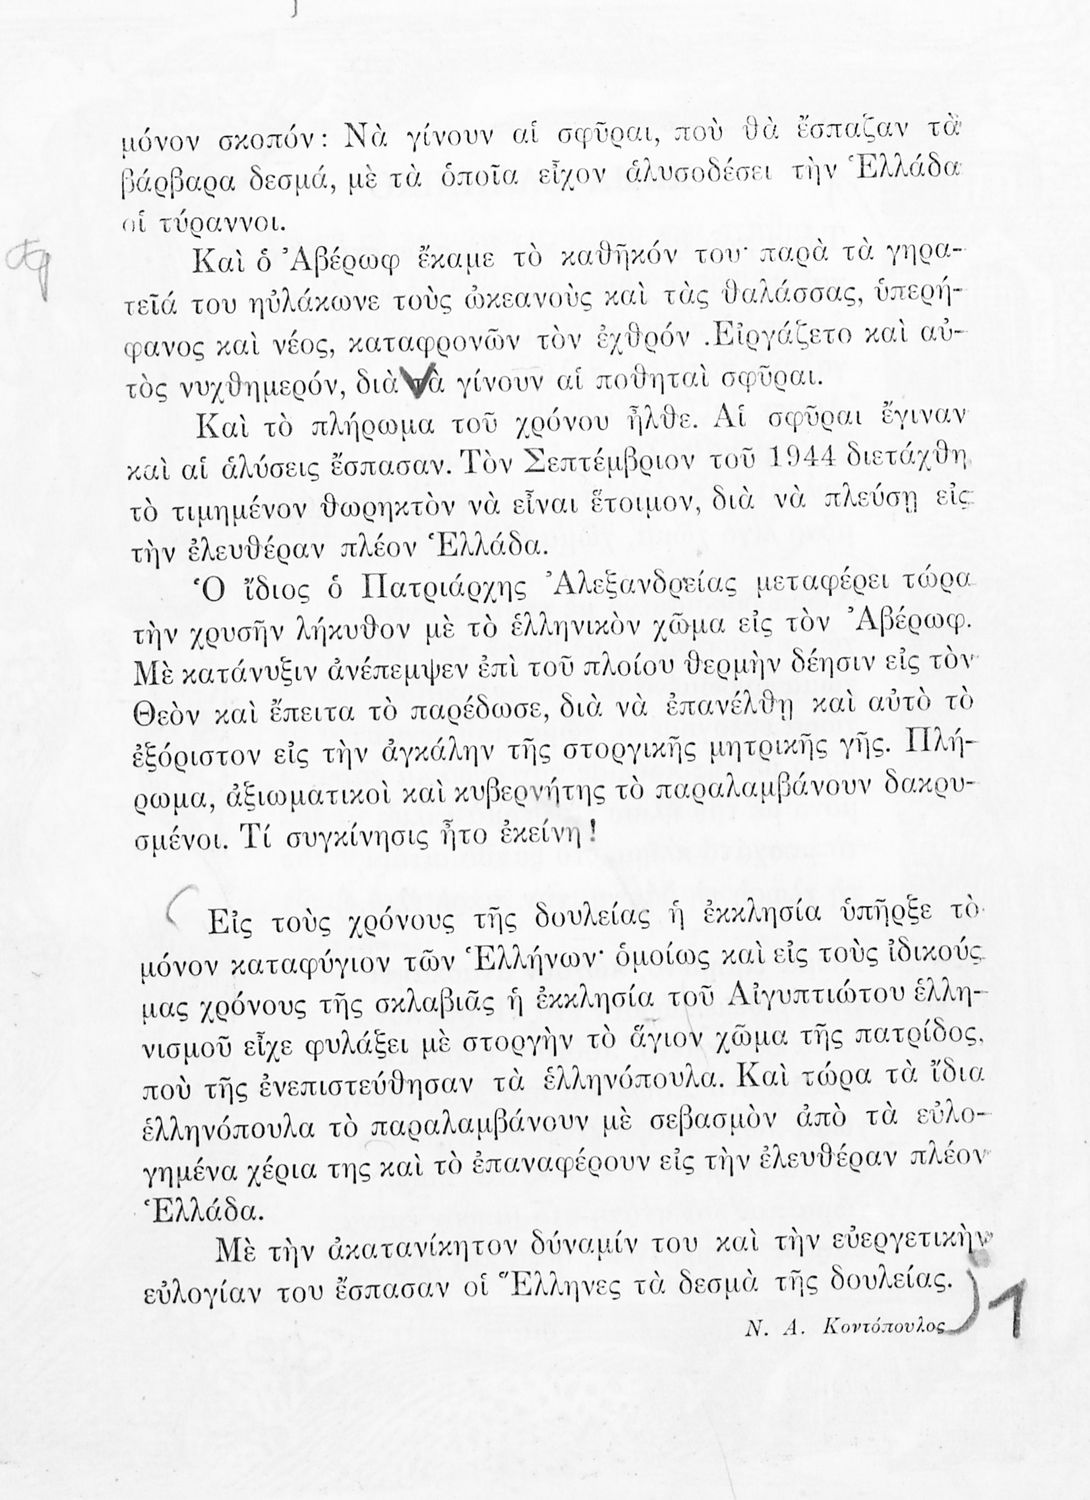 μόνον σκοπόν: Νὰ γίνουν αἱ σφῦραι, ποὺ θὰ ἔσπαζαν τὰ
βάρβαρα δεσμά, μὲ τὰ ὁποῖα εἶχον ἁλυσοδέσει τὴν Ἑλλάδα
οἱ τύραννοι.
Καὶ ὁ Ἀβέρωφ ἔκαμε τὸ καθῆκόν του· παρὰ τὰ γηρα-
τεῖά του ηὐλάκωνε τοὺς ὠκεανοὺς καὶ τὰς θαλάσσας, ὑπερή-
φανος καὶ νέος, καταφρονῶν τὸν ἐχθρόν .Εἰργάζετο καὶ αὐ-
τὸς νυχθημερόν, διὰ νὰ γίνουν αἱ ποθηταὶ σφῦραι.
Καὶ τὸ πλήρωμα τοῦ χρόνου ἦλθε. Αἱ σφῦραι ἔγιναν
καὶ αἱ ἁλύσεις ἔσπασαν. Τὸν Σεπτέμβριον τοῦ 1944 διετάχθη
τὸ τιμημένον θωρηκτὸν νὰ εἶναι ἕτοιμον, διὰ νὰ πλεύσῃ εἰς
τὴν ἐλευθέραν πλέον Ἑλλάδα.
Ὁ ἴδιος ὁ Πατριάρχης Ἀλεξανδρείας μεταφέρει τώρα
τὴν χρυσῆν λήκυθον μὲ τὸ ἑλληνικὸν χῶμα εἰς τὸν Ἀβέρωφ.
Μὲ κατάνυξιν ἀνέπεμψεν ἐπὶ τοῦ πλοίου θερμὴν δέησιν εἰς τὸν
Θεὸν καὶ ἔπειτα τὸ παρέδωσε, διὰ νὰ ἐπανέλθῃ καὶ αὐτὸ τὸ
ἐξόριστον εἰς τὴν ἀγκάλην τῆς στοργικῆς μητρικῆς γῆς. Πλή-
ρωμα, ἀξιωματικοὶ καὶ κυβερνήτης τὸ παραλαμβάνουν δακρυ-
σμένοι. Τί συγκίνησις ἦτο ἐκείνη!
Εἰς τοὺς χρόνους τῆς δουλείας ἡ ἐκκλησία ὑπῆρξε τὸ
μόνον καταφύγιον τῶν Ἑλλήνων· ὁμοίως καὶ εἰς τοὺς ἰδικούς
μας χρόνους τῆς σκλαβιᾶς ἡ ἐκκλησία τοῦ Αἰγυπτιώτου ἑλλη-
νισμοῦ εἶχε φυλάξει μὲ στοργὴν τὸ ἅγιον χῶμα τῆς πατρίδος,
ποὺ τῆς ἐνεπιστεύθησαν τὰ ἑλληνόπουλα. Καὶ τώρα τὰ ἴδια
ἑλληνόπουλα τὸ παραλαμβάνουν μὲ σεβασμὸν ἀπὸ τὰ εὐλο-
γημένα χέρια της καὶ τὸ ἐπαναφέρουν εἰς τὴν ἐλευθέραν πλέον
Ἑλλάδα.
Μὲ τὴν ἀκατανίκητον δύναμίν του καὶ τὴν εὐεργετικὴν
εὐλογίαν του ἔσπασαν οἱ Ἕλληνες τὰ δεσμὰ τῆς δουλείας.
Ν. Α. Κοντόπουλος
1